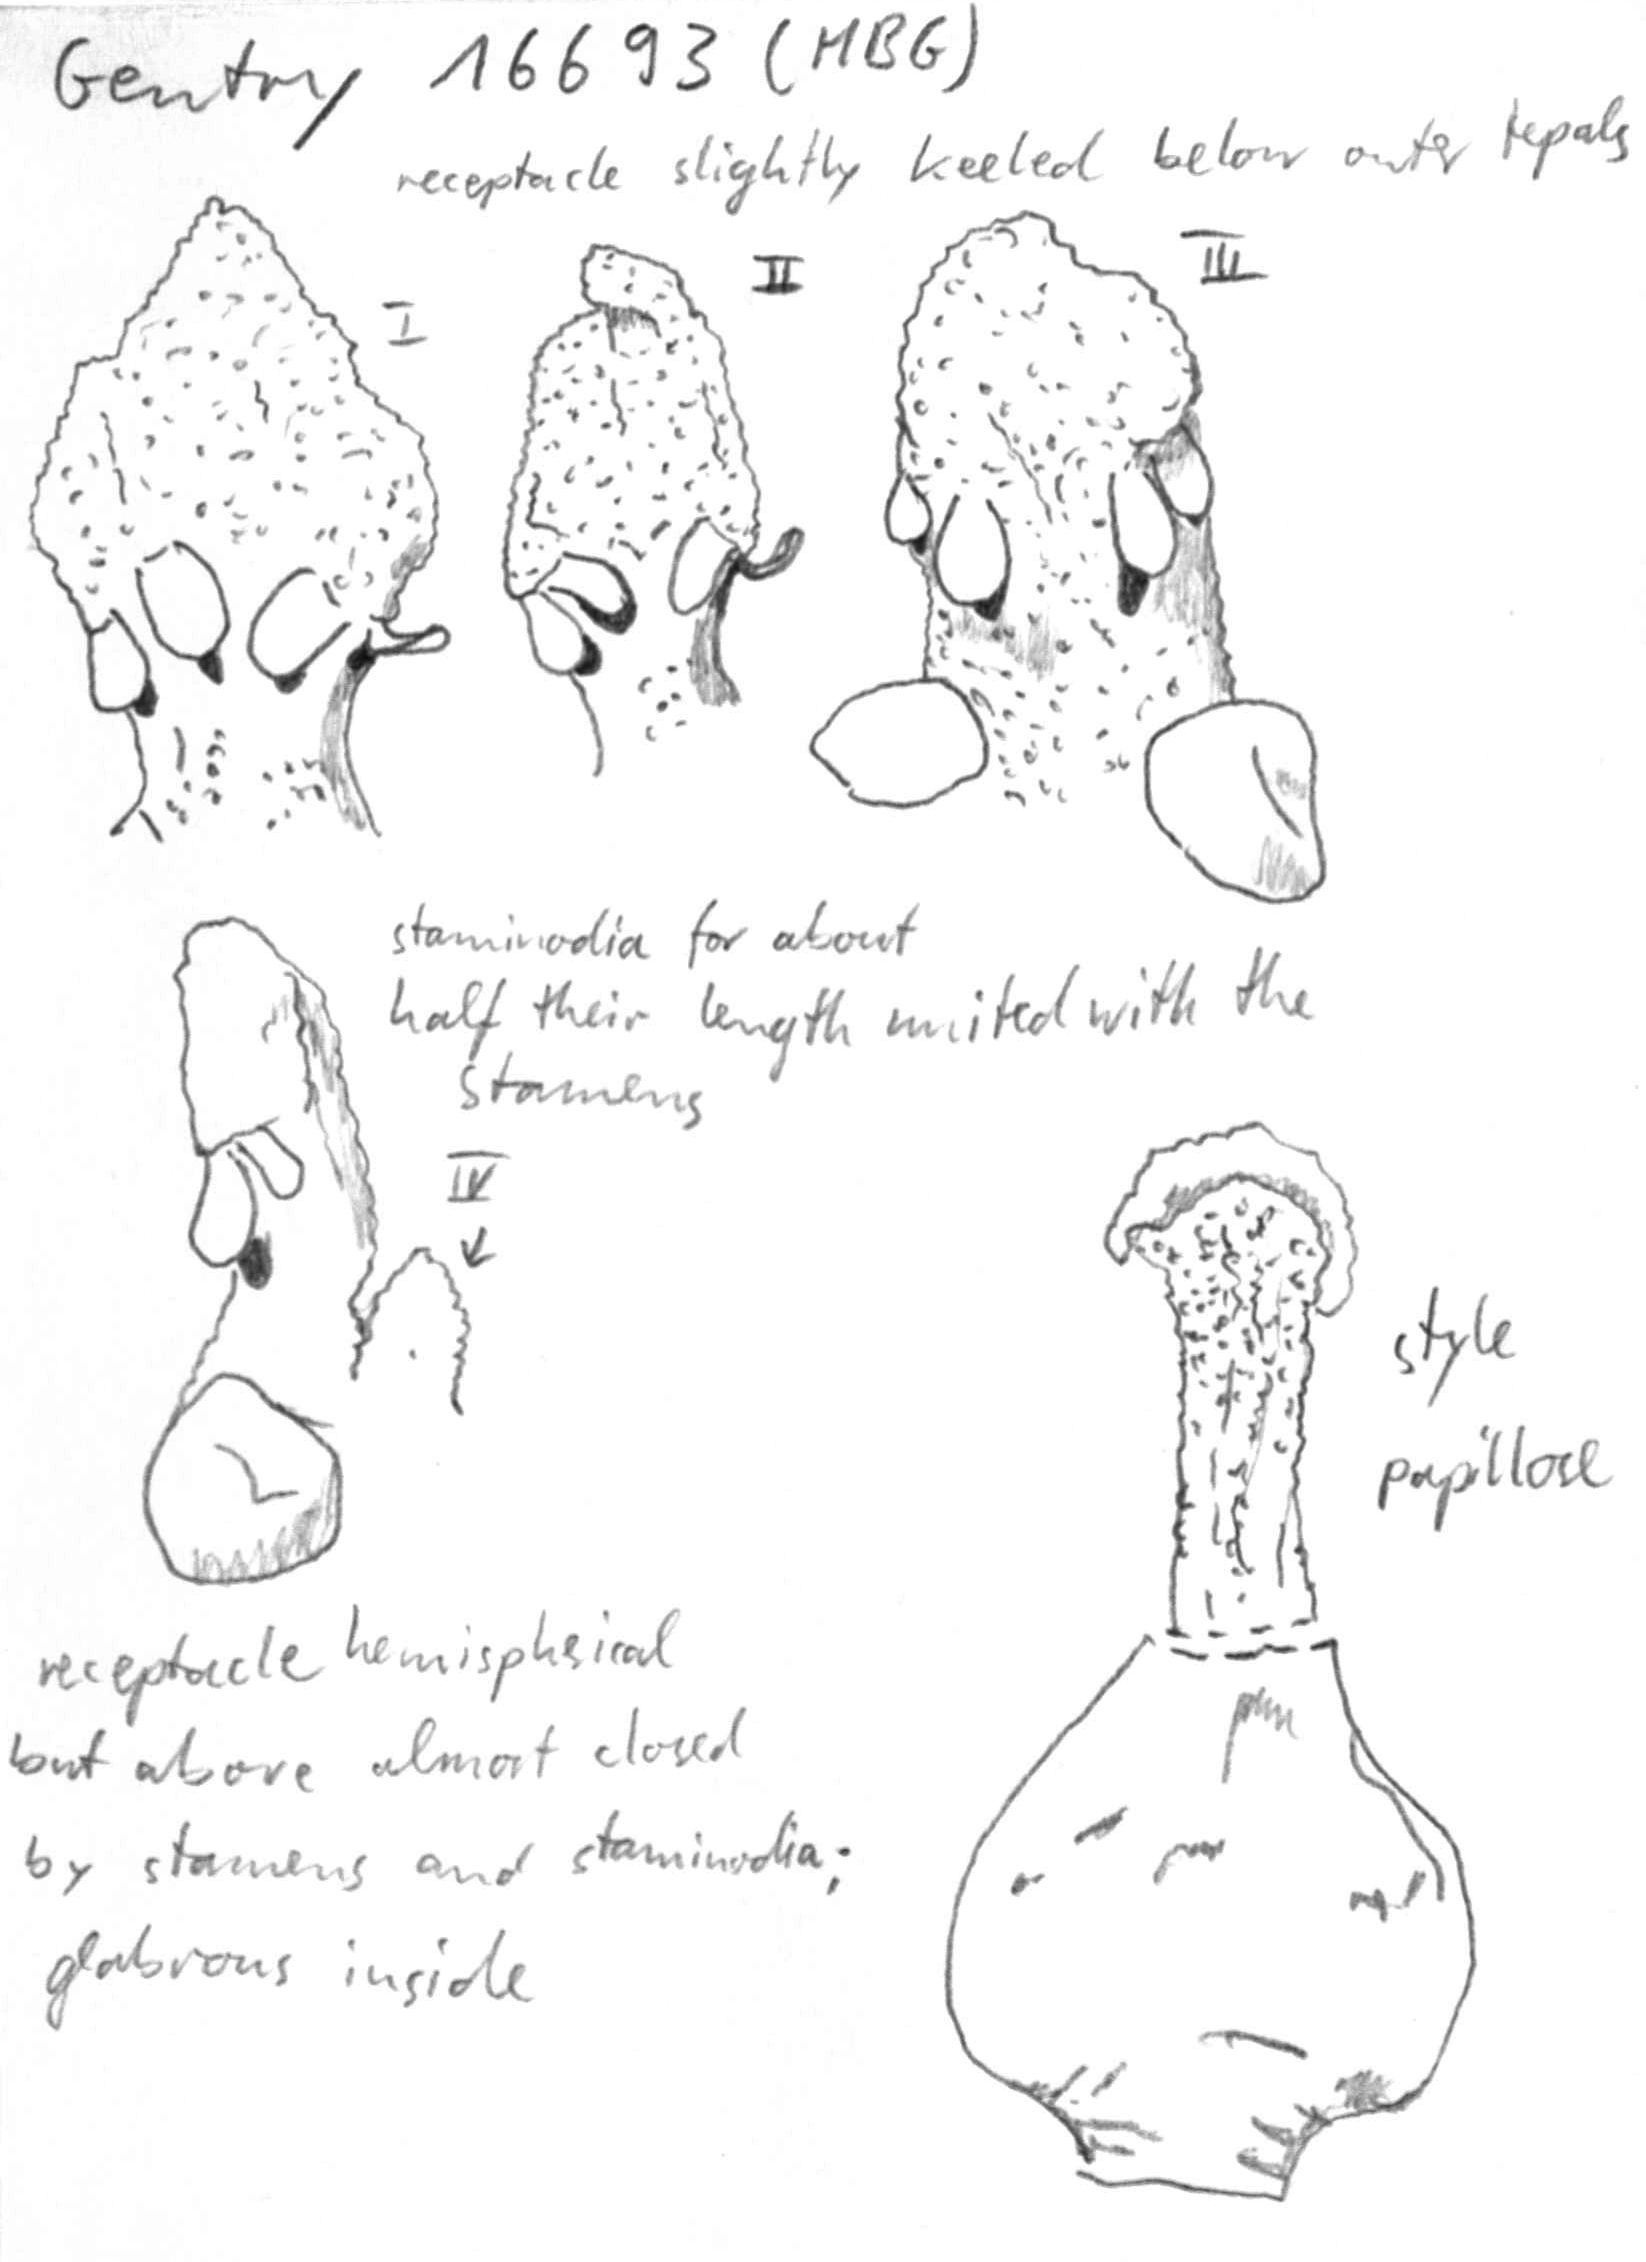 Gentry 16693 (MBG)
receptacle slightly keeled below outer tepals
I
II
III
staminodia for about
half their length united with the
stamens
IV
style
papillose
receptacle hemispherical
but above almost closed
by stamens and staminodia;
glabrous inside